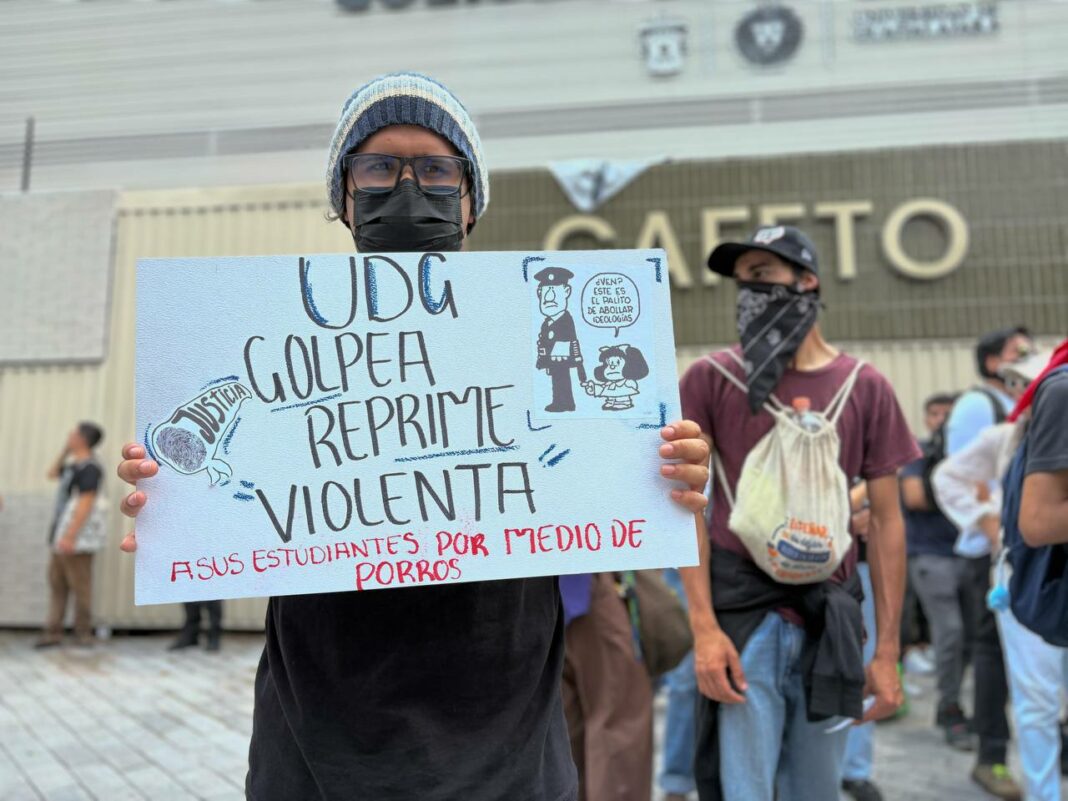 CAFETO
UDG
GOLPEA
REPRIME
VIOLENTA
ASUS ESTUDIANTES POR MEDIO DE
PORROS
JUSTICIA
¿VEN?
ESTE ES
EL PALITO
DE ABOLLAR
IDEOLOGÍAS